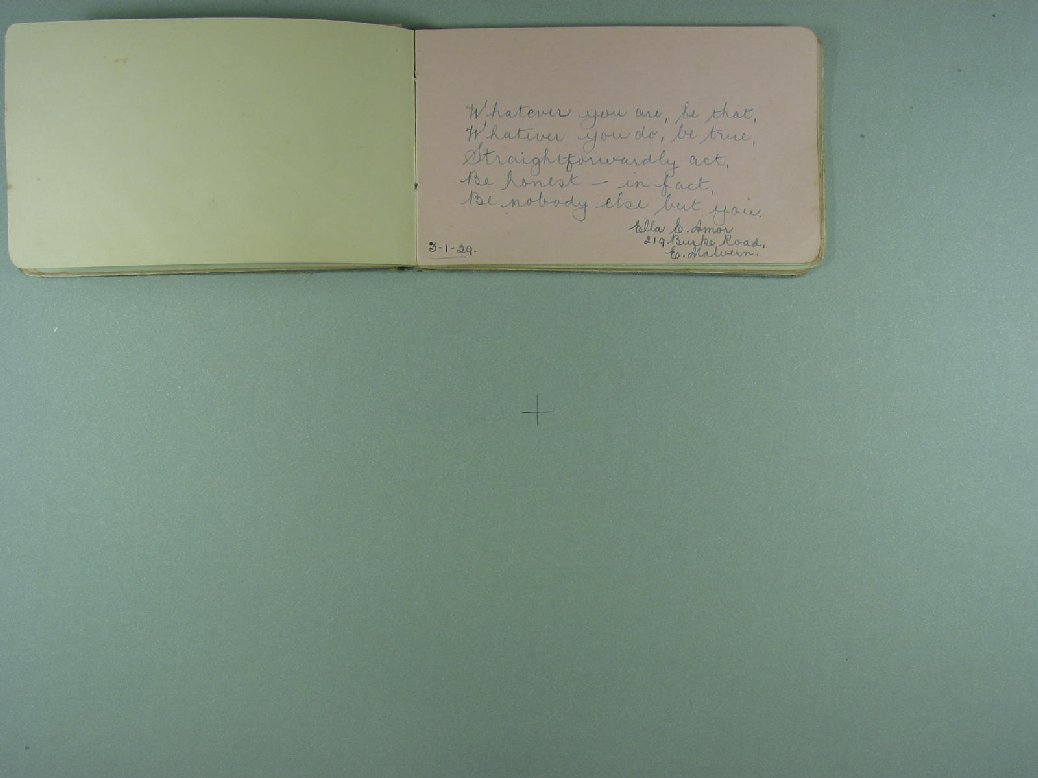 Whatever you are, be that,
Whatever you do, be true,
Straightforwardly act,
Be honest – in fact,
Be nobody else but you.
Ella E. Amor
219 Burke Road,
E. Malvern.
3-1-29.